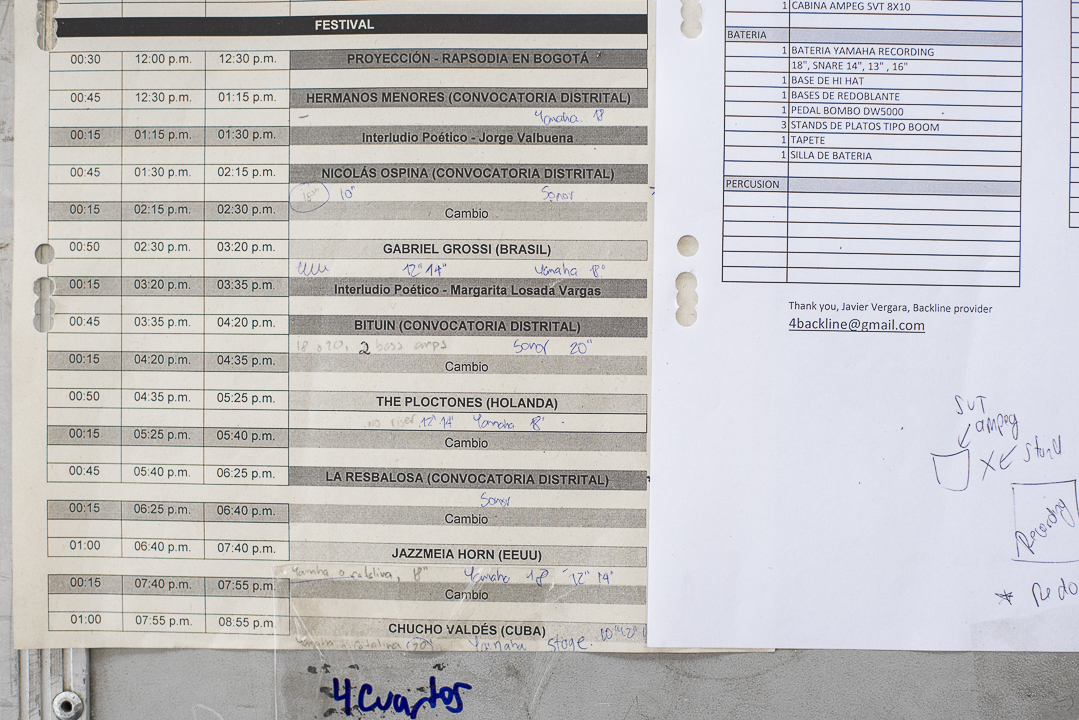 FESTIVAL
00:30 12:00 p.m. 12:30 p.m. PROYECCIÓN - RAPSODIA EN BOGOTÁ
00:45 12:30 p.m. 01:15 p.m. HERMANOS MENORES (CONVOCATORIA DISTRITAL)
Yamaha 18
00:15 01:15 p.m. 01:30 p.m. Interludio Poético - Jorge Valbuena
00:45 01:30 p.m. 02:15 p.m. NICOLÁS OSPINA (CONVOCATORIA DISTRITAL)
10" Sonor
00:15 02:15 p.m. 02:30 p.m. Cambio
00:50 02:30 p.m. 03:20 p.m. GABRIEL GROSSI (BRASIL)
12" 14" Yamaha 18"
00:15 03:20 p.m. 03:35 p.m. Interludio Poético - Margarita Losada Vargas
00:45 03:35 p.m. 04:20 p.m. BITUIN (CONVOCATORIA DISTRITAL)
18 o 20, 2 bass amps Sonor 20"
00:15 04:20 p.m. 04:35 p.m. Cambio
00:50 04:35 p.m. 05:25 p.m. THE PLOCTONES (HOLANDA)
no riser 12" 14" Yamaha 18"
00:15 05:25 p.m. 05:40 p.m. Cambio
00:45 05:40 p.m. 06:25 p.m. LA RESBALOSA (CONVOCATORIA DISTRITAL)
Sonor
00:15 06:25 p.m. 06:40 p.m. Cambio
01:00 06:40 p.m. 07:40 p.m. JAZZMEIA HORN (EEUU)
Yamaha o 18" Yamaha 18 12" 14"
00:15 07:40 p.m. 07:55 p.m. Cambio
01:00 07:55 p.m. 08:55 p.m. CHUCHO VALDÉS (CUBA)
(20) Yamaha Stage.
4 cuartos
1 CABINA AMPEG SVT 8X10
BATERIA
1 BATERIA YAMAHA RECORDING
18", SNARE 14", 13" , 16"
1 BASE DE HI HAT
1 BASES DE REDOBLANTE
1 PEDAL BOMBO DW5000
3 STANDS DE PLATOS TIPO BOOM
1 TAPETE
1 SILLA DE BATERIA
PERCUSION
Thank you, Javier Vergara, Backline provider
4backline@gmail.com
SVT
ampeg
Stand
Recording
* Redo